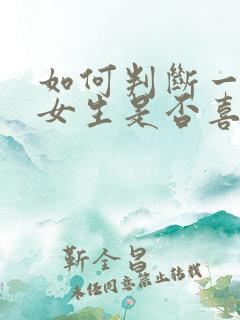 如何判斷一
女生是否喜
靳全昌
未经同意禁止转载